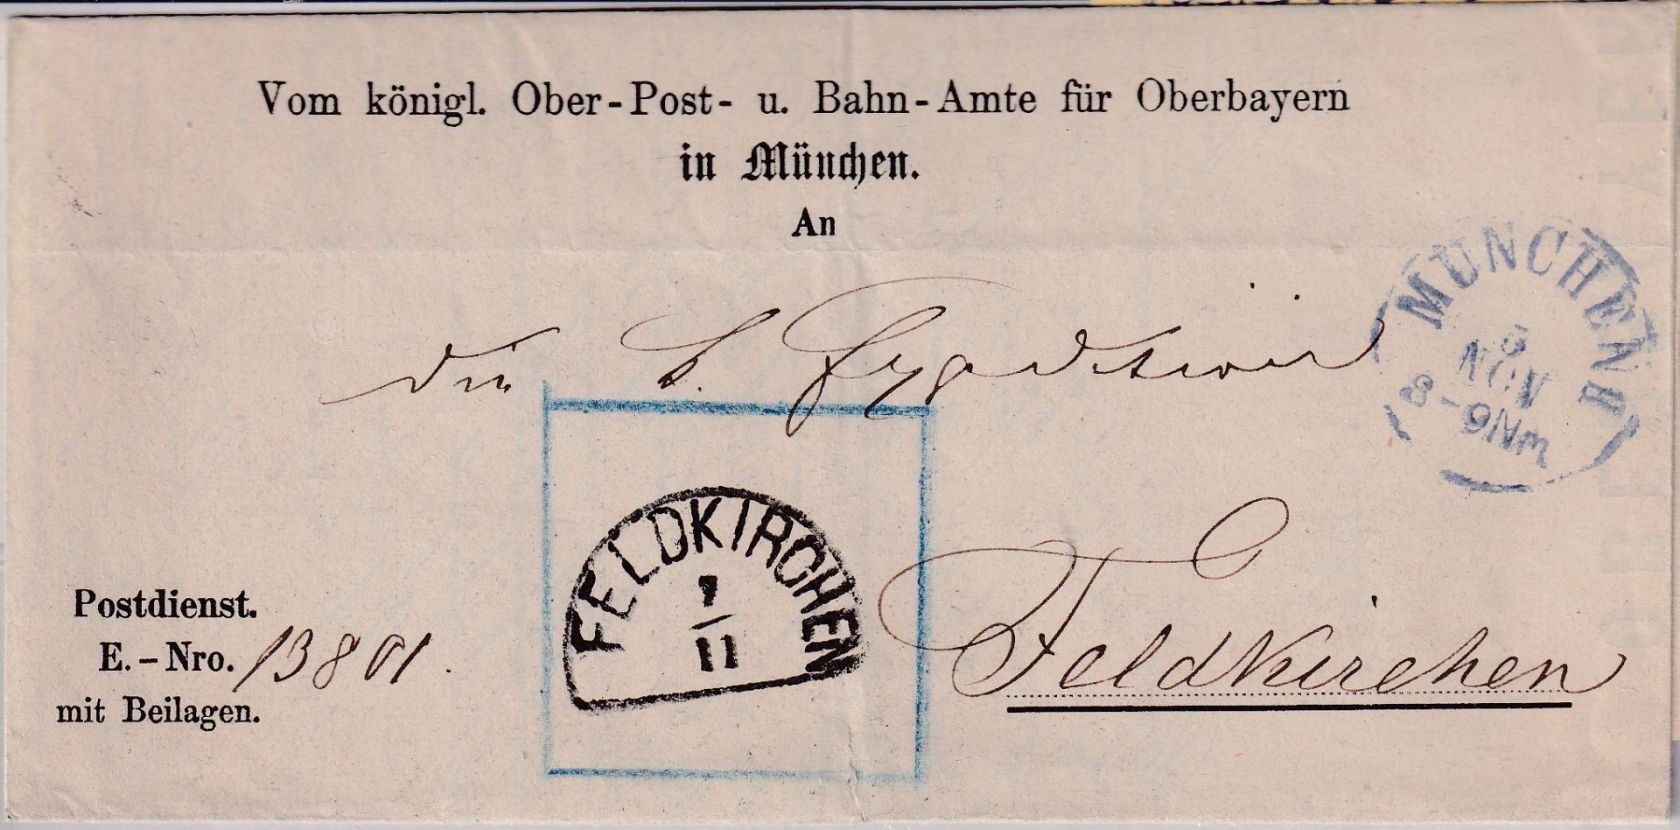 Vom königl. Ober-Post- u. Bahn-Amte für Oberbayern
in München.
An
die k. Expedition
MÜNCHEN
5
NOV
8-9Nm
FELDKIRCHEN
7
11
Feldkirchen
Postdienst.
E.-Nro. 13801.
mit Beilagen.